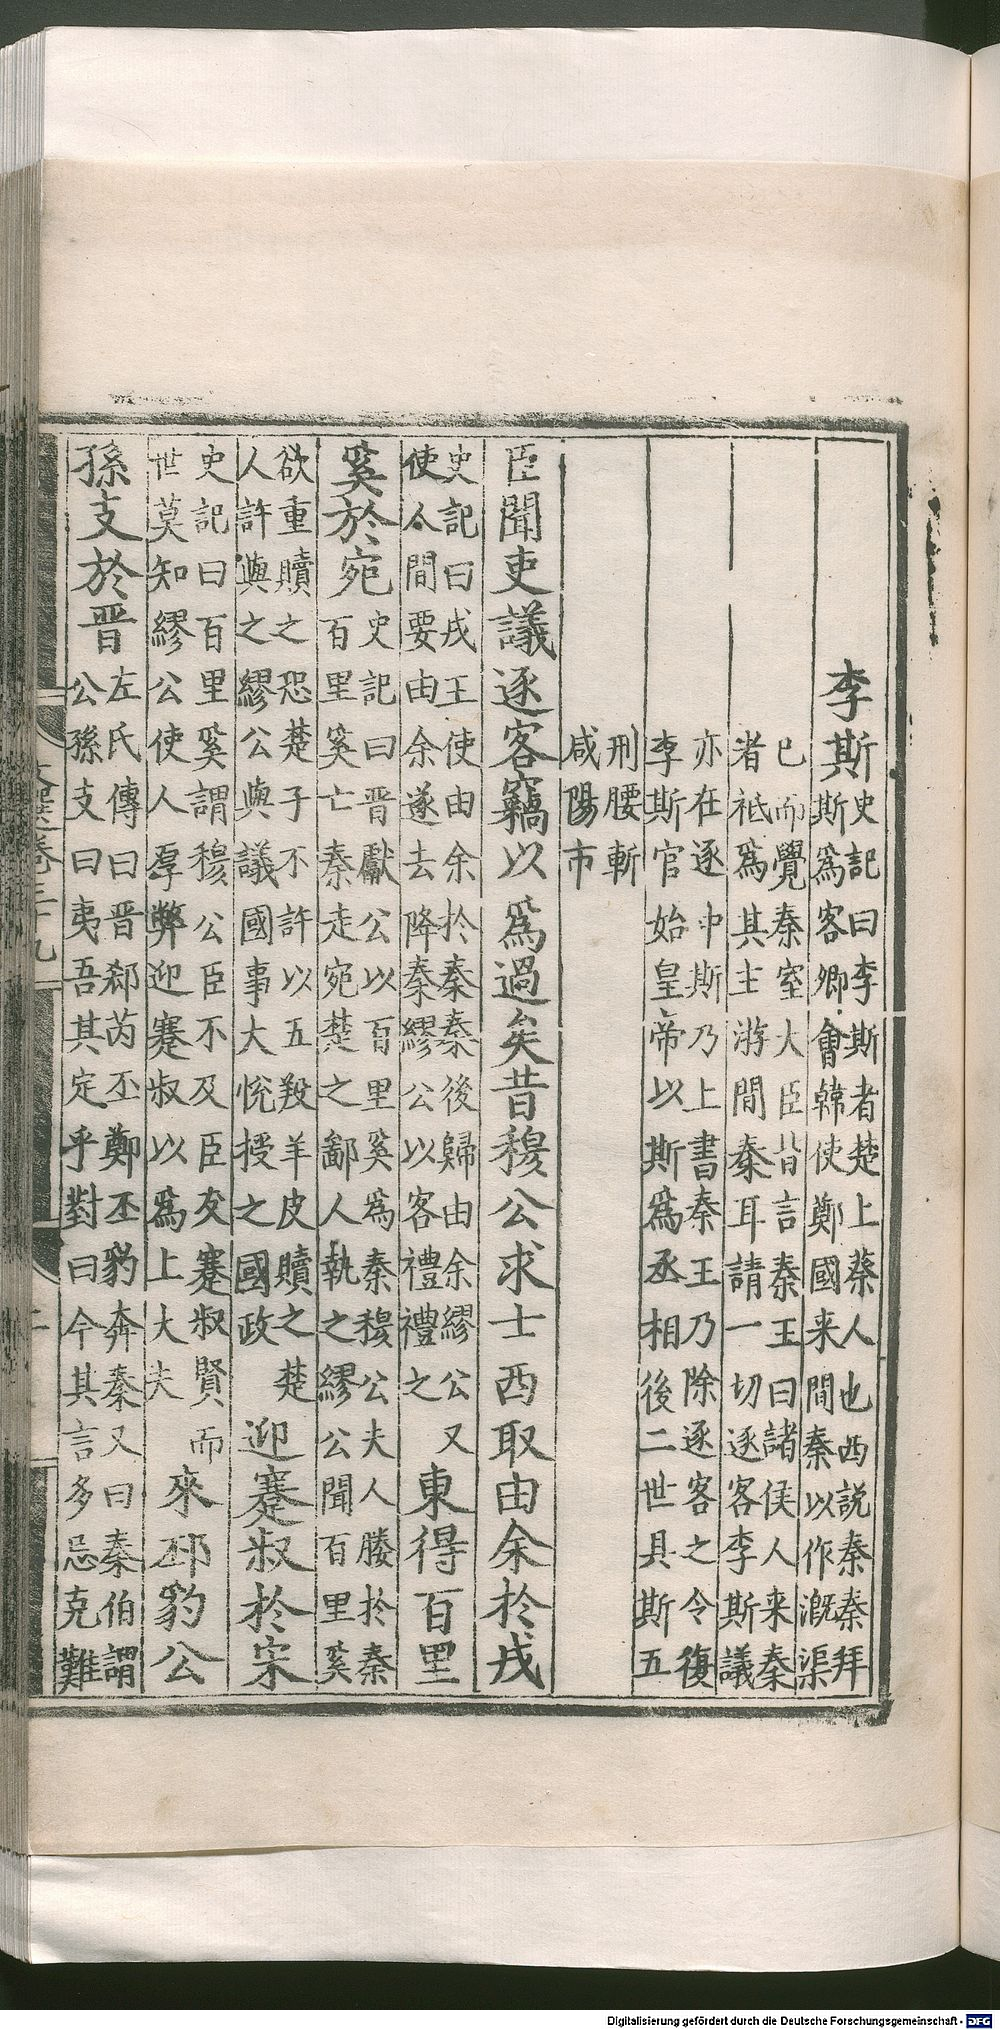 李斯史記曰李斯者楚上蔡人也西説秦秦拜
斯爲客卿會韓使鄭國来間秦以作漑渠
已而覺秦室大臣皆言秦王曰諸侯人来秦
者祗爲其主游間秦耳請一切逐客李斯議
亦在逐中斯乃上書秦王乃除逐客之令復
李斯官始皇帝以斯爲丞相後二世具斯五
刑腰斬
咸陽市
臣聞吏議逐客竊以爲過矣昔穆公求士西取由余於戎
史記曰戎王使由余於秦秦後歸由余繆公又
使人間要由余遂去降秦繆公以客禮禮之
東得百里
奚於宛
史記曰晋獻公以百里奚爲秦穆公夫人媵於秦
百里奚亡秦走宛楚之鄙人執之繆公聞百里奚
欲重贖之恐楚子不許以五羖羊皮贖之楚
人許與之繆公與議國事大悅授之國政
迎蹇叔於宋
史記曰百里奚謂穆公臣不及臣友蹇叔賢而
世莫知繆公使人厚幣迎蹇叔以爲上大夫
來邳豹公
孫支於晋
左氏傳曰晋郄芮丕鄭丕豹奔秦又曰秦伯謂
公孫支曰夷吾其定乎對曰今其言多忌克難
Digitalisierung gefördert durch die Deutsche Forschungsgemeinschaft - DFG